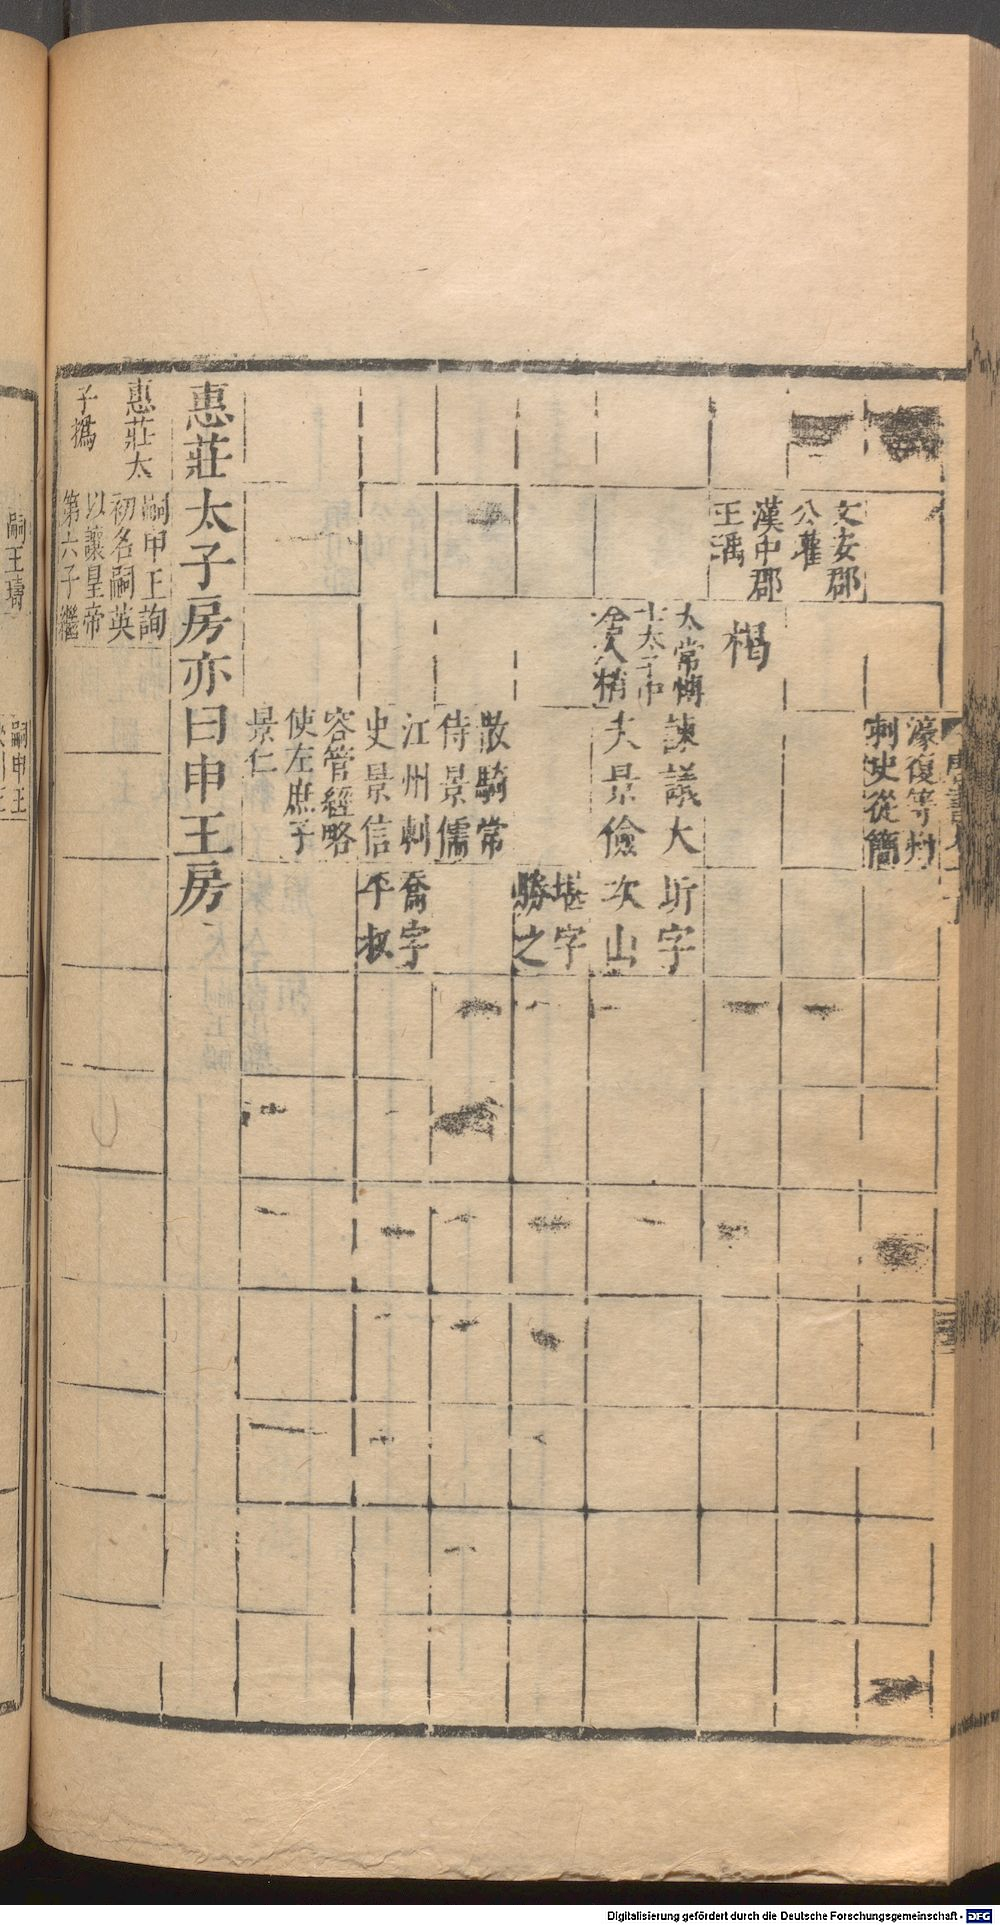 濠復等州
刺史從簡
文安郡
公瓘
漢中郡
王瑀
楬
太常博
士太子中
舍人楕
諫議大
夫景儉
圻字
次山
堪字
勝之
散騎常
侍景儒
江州刺
史景信
喬字
平叔
容管經略
使左庶子
景仁
惠莊太子房亦曰申王房
惠莊太
子撝
嗣申王詢
初名嗣英
以讓皇帝
第六子繼
嗣王璹
嗣申王
Digitalisierung gefördert durch die Deutsche Forschungsgemeinschaft - DFG